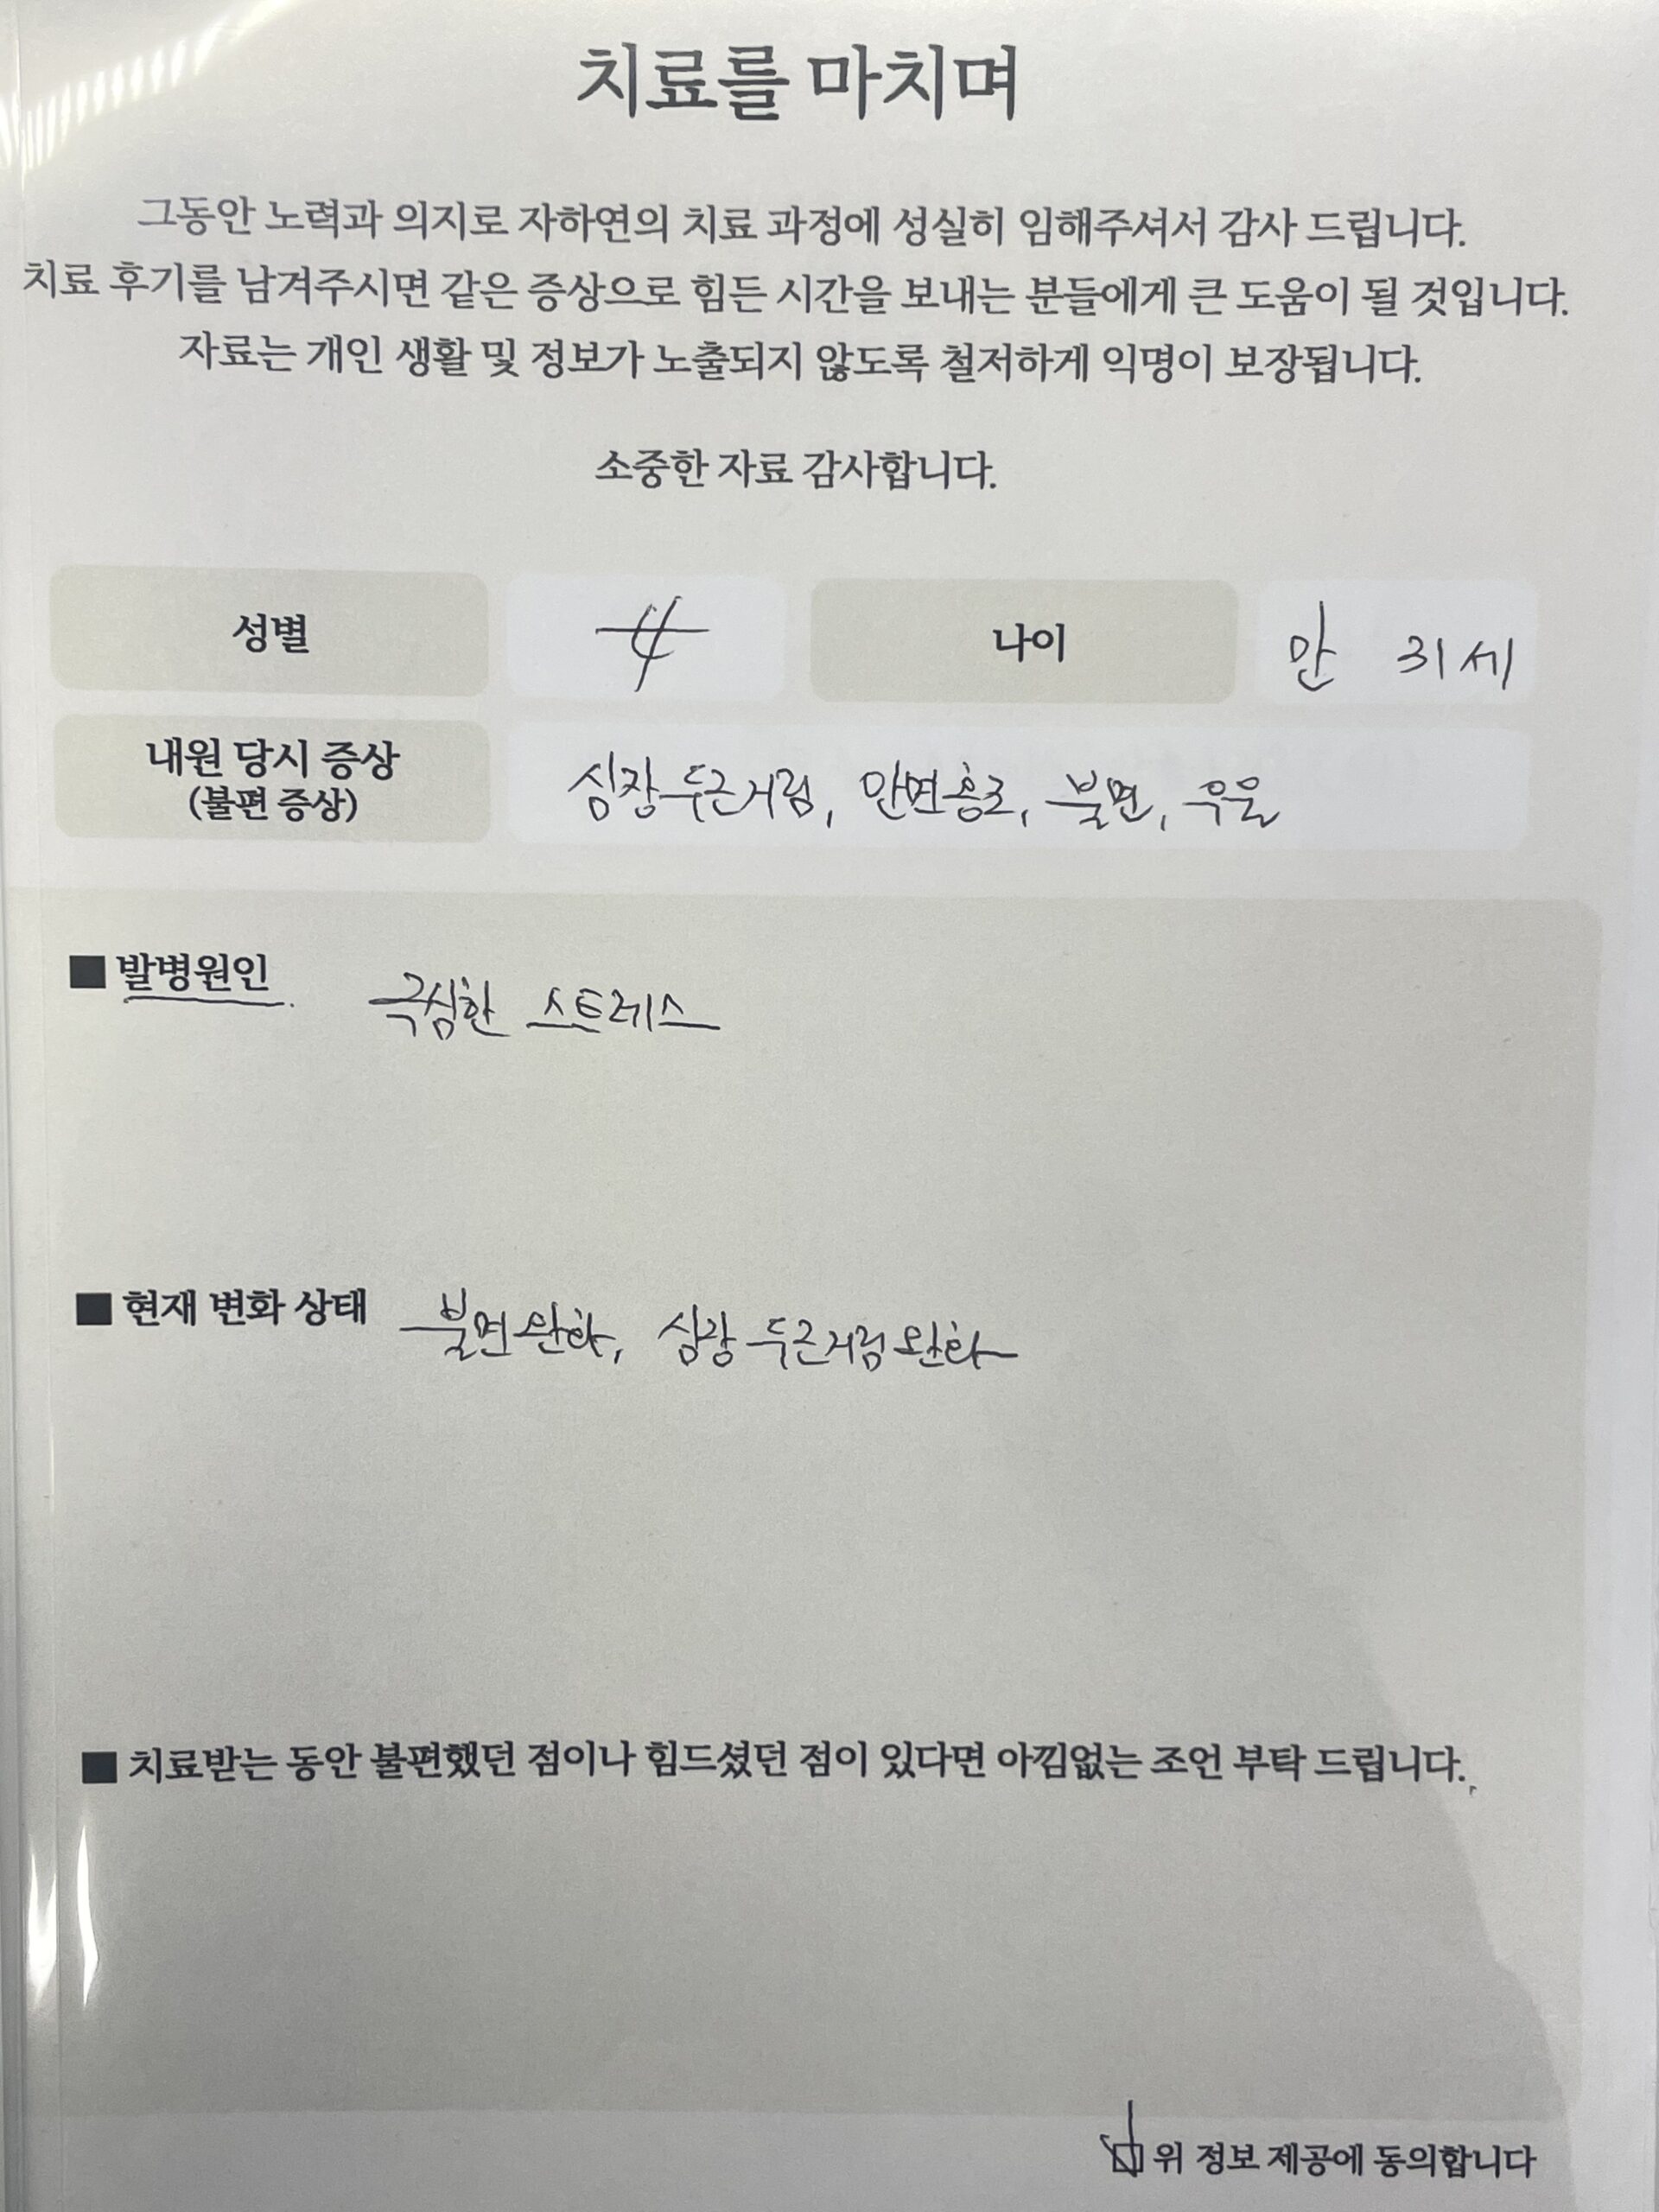 치료를 마치며
그동안 노력과 의지로 자하연의 치료 과정에 성실히 임해주셔서 감사 드립니다.
치료 후기를 남겨주시면 같은 증상으로 힘든 시간을 보내는 분들에게 큰 도움이 될 것입니다.
자료는 개인 생활 및 정보가 노출되지 않도록 철저하게 익명이 보장됩니다.
소중한 자료 감사합니다.
성별 女 나이 만 31세
내원 당시 증상 심장두근거림, 안면홍조, 불면, 우울
(불편 증상)
■ 발병원인 극심한 스트레스
■ 현재 변화 상태 불면완화, 심장두근거림완화
■ 치료받는 동안 불편했던 점이나 힘드셨던 점이 있다면 아낌없는 조언 부탁 드립니다.
위 정보 제공에 동의합니다